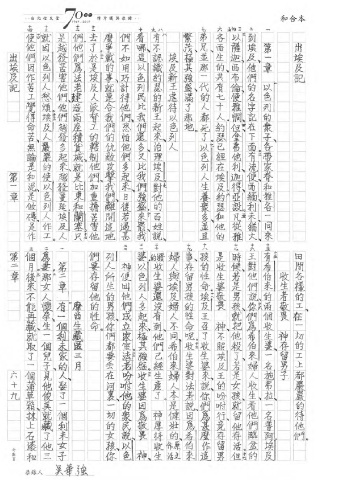 和合本
70
出埃及記
第一章 以色列的眾子各帶家眷和雅各一同來
到埃及他們的名字記在下面有流便西緬利未猶大
以薩迦西布倫便雅憫但拿弗他利迦得亞設凡從雅
各而生的共有七十人約瑟已經在埃及約瑟和他的
弟兄並那一代的人都死了以色列人生養眾多並且
繁茂極其強盛滿了那地
埃及新王虐待以色列人
有不認識約瑟的新王起來治理埃及對他的百姓說
看哪這以色列民比我們還多又比我們強盛來罷我
們不如用巧計待他們恐怕他們多起來日後若遇甚
麼爭戰的事就連合我們的仇敵攻擊我們離開這地
去了於是埃及人派督工的轄制他們加重擔苦害他
們他們為法老建造兩座積貨城就是比東和蘭塞只
是越發苦害他們他們越發多起來越發蔓延埃及人
就因以色列人愁煩埃及人嚴嚴的使以色列人作工
使他們因作苦工覺得命苦無論是和泥是做磚是作
田間各樣的工在一切的工上都嚴嚴的待他們
收生婆敬畏神存留男子
有希伯來的兩個收生婆一名施弗拉一名普阿埃及
王對他們說你們為希伯來婦人收生看他們臨盆的
時候若是男孩就把他殺了若是女孩就留他存活但
是收生婆敬畏神不照埃及王的吩咐行竟存留男
孩的性命埃及王召了收生婆來說你們為甚麼作這
事存留男孩的性命呢收生婆對法老說因為希伯來
婦人與埃及婦人不同希伯來婦人本是健壯的
收生婆還沒有到他們已經生產了神厚待收生
婆以色列人多起來極其強盛收生婆因為敬畏神
神便叫他們成立家室法老吩咐他的眾民說以色
列人所生的男孩你們都要丟在河裏一切的女孩你
們要存留他的性命
摩西生藏匿三月
第二章 有一個利未家的人娶了一個利未女子
為妻那女人懷孕生一個兒子見他俊美就藏了他三
個月後來不能再藏就取了一個蒲草箱抹上石漆和
出埃及記
第一章
第二章
六十九